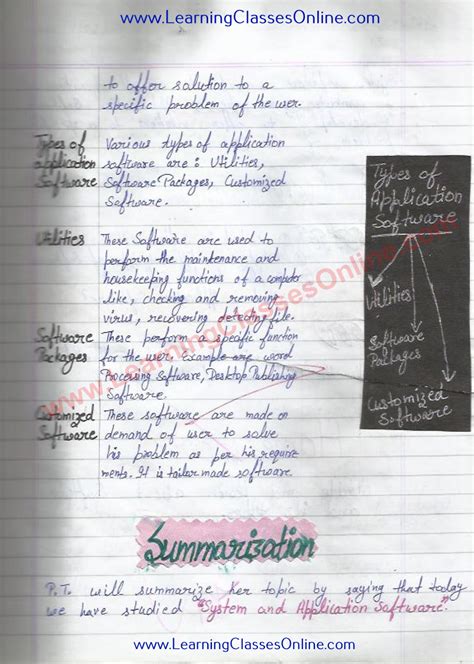 www.LearningClassesOnline.com
to offer solution to a
specific problem of the user.
Types of
application
Software
Various types of application
software are : Utilities,
Software Packages, Customized
Software.
Utilities
These Software are used to
perform the maintenance and
housekeeping functions of a computer
like, checking and removing
virus, recovering detecting file.
Software
Packages
These perform a specific function
for the user. Example are word
Processing Software, Desktop Publishing
Software.
Customized
Software
These software are made on
demand of user to solve
his problem as per his require
ments. It is tailor made software.
Types of
Application
Software
Utilities
Software
Packages
Customized
Software
www.LearningClassesOnline.com
Summarization
P.T. will summarize her topic by saying that today
we have studied "System and Application Software".
www.LearningClassesOnline.com